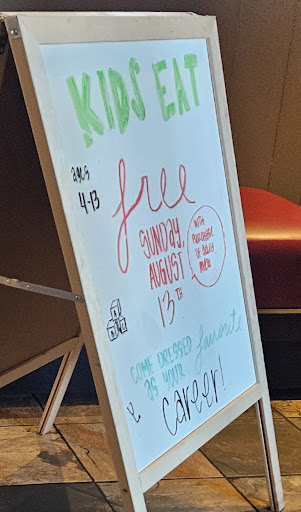 KIDS EAT
AGES
4-13
free
SUNDAY,
AUGUST
13TH
WITH
PURCHASE
OF ADULT
MEAL
COME DRESSED
AS YOUR favorite
career!